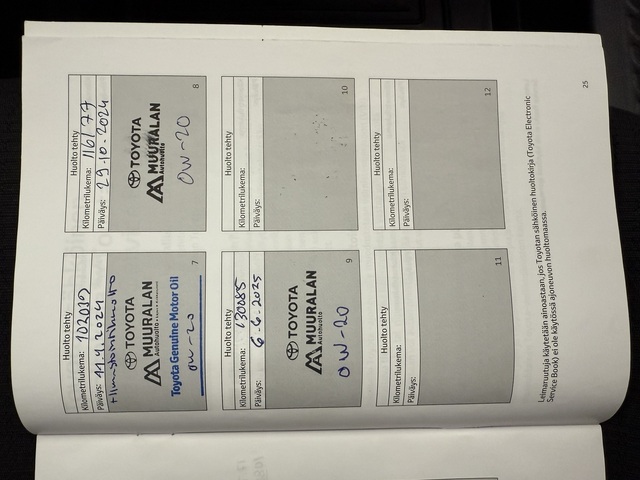 Huolto tehty
Kilometrilukema: 102039
Päiväys: 11.4.2024
TOYOTA
MUURALAN
Autohuolto
Toyota Genuine Motor Oil
OW-20
7
Huolto tehty
Kilometrilukema: 116177
Päiväys: 29.10.2024
TOYOTA
MUURALAN
Autohuolto
OW-20
8
Huolto tehty
Kilometrilukema: 130085
Päiväys: 6.6.2025
TOYOTA
MUURALAN
Autohuolto
OW-20
9
Huolto tehty
Kilometrilukema:
Päiväys:
10
Huolto tehty
Kilometrilukema:
Päiväys:
11
Huolto tehty
Kilometrilukema:
Päiväys:
12
Leimaruutuja käytetään ainoastaan, jos Toyotan sähköinen huoltokirja (Toyota Electronic
Service Book) ei ole käytössä ajoneuvon huoltomaassa.
25